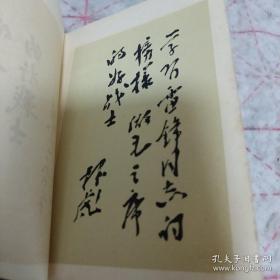 学习雷锋同志的
榜样 做毛主席
的好战士
林彪
孔夫子旧书网